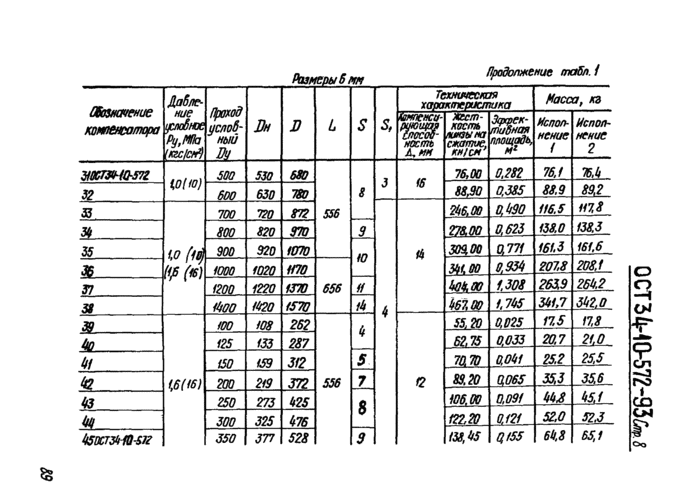 Размеры в мм
Продолжение табл. 1
Обозначение компенсатора | Давление условное Ру, МПа (кгс/см²) | Проход условный Dу | Dн | D | L | S | S₁ | Техническая характеристика | Масса, кг
Компенсирующая способность Δ, мм | Жесткость линзы на сжатие, кн/см | Эффективная площадь, м² | Исполнение 1 | Исполнение 2
31ОСТ34-10-572 | 1,0(10) | 500 | 530 | 680 | 556 | 8 | 3 | 16 | 76,00 | 0,282 | 76,1 | 76,4
32 | 600 | 630 | 780 | 88,90 | 0,385 | 88,9 | 89,2
33 | 1,0 (10) (1,6 (16) | 700 | 720 | 872 | 4 | 14 | 246,00 | 0,490 | 116,5 | 117,8
34 | 800 | 820 | 970 | 9 | 278,00 | 0,623 | 138,0 | 138,3
35 | 900 | 920 | 1070 | 10 | 309,00 | 0,771 | 161,3 | 161,6
36 | 1000 | 1020 | 1170 | 656 | 341,00 | 0,934 | 207,8 | 208,1
37 | 1200 | 1220 | 1370 | 11 | 404,00 | 1,308 | 263,9 | 264,2
38 | 1400 | 1420 | 1570 | 14 | 467,00 | 1,745 | 341,7 | 342,0
39 | 1,6(16) | 100 | 108 | 262 | 556 | 4 | 12 | 55,20 | 0,025 | 17,5 | 17,8
40 | 125 | 133 | 287 | 62,75 | 0,033 | 20,7 | 21,0
41 | 150 | 159 | 312 | 5 | 70,70 | 0,041 | 25,2 | 25,5
42 | 200 | 219 | 372 | 7 | 89,20 | 0,065 | 35,3 | 35,6
43 | 250 | 273 | 425 | 8 | 106,00 | 0,091 | 44,8 | 45,1
44 | 300 | 325 | 476 | 122,20 | 0,121 | 52,0 | 52,3
45ОСТ34-10-572 | 350 | 377 | 528 | 9 | 138,45 | 0,155 | 64,8 | 65,1
ОСТ34-10-572-93 Стр. 8
89